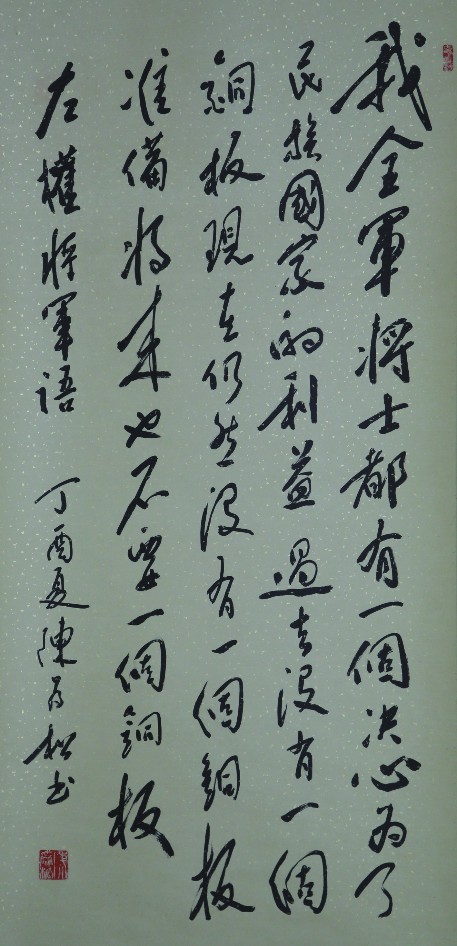 我全軍將士都有一個决心為了
民族國家的利益過去没有一個
銅板現在仍然没有一個銅板
准備将来也不要一個銅板
左權將軍語
丁酉夏陳 松书